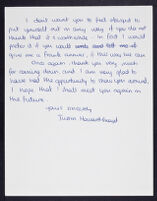 I don't want you to feel obliged to
put yourself out in any way if you do not
think that it is worthwhile - in fact I would
prefer it if you would
give me a frank answer, if this way we can
Once again thank you very much
for coming down and I am very glad to
have had the opportunity to show you around.
I hope that I shall meet you again in
the future.
Yours sincerely